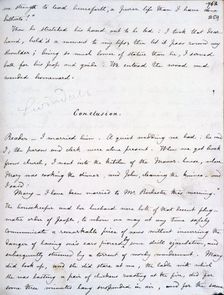 me strength to lead henceforth a purer life than I have done
hitherto!"
Then he stretched his hand out to be led: I took that dear
hand, held it a moment to my lips, then let it pass round my
shoulder; being so much lower of stature than he, I served
both for his prop and guide. We entered the wood and
wended homeward.
Conclusion.
Reader, I married him. A quiet wedding we had; he and
I, the parson and clerk were alone present. When we got back
from church, I went into the kitchen of the Manor-house, where
Mary was cooking the dinner, and John cleaning the knives, and
I said:
"Mary, I have been married to Mr. Rochester this morning."
The housekeeper and her husband were both of that decent phleg-
matic order of people, to whom one may at any time safely
communicate a remarkable piece of news without incurring the
danger of having one's ears pierced by some shrill ejaculation, and
subsequently stunned by a torrent of wordy wonderment. Mary
did look up, and she did stare at me; the ladle with which
she was basting a pair of chickens roasting at the fire, did for
some three minutes hang suspended in air, and for the same